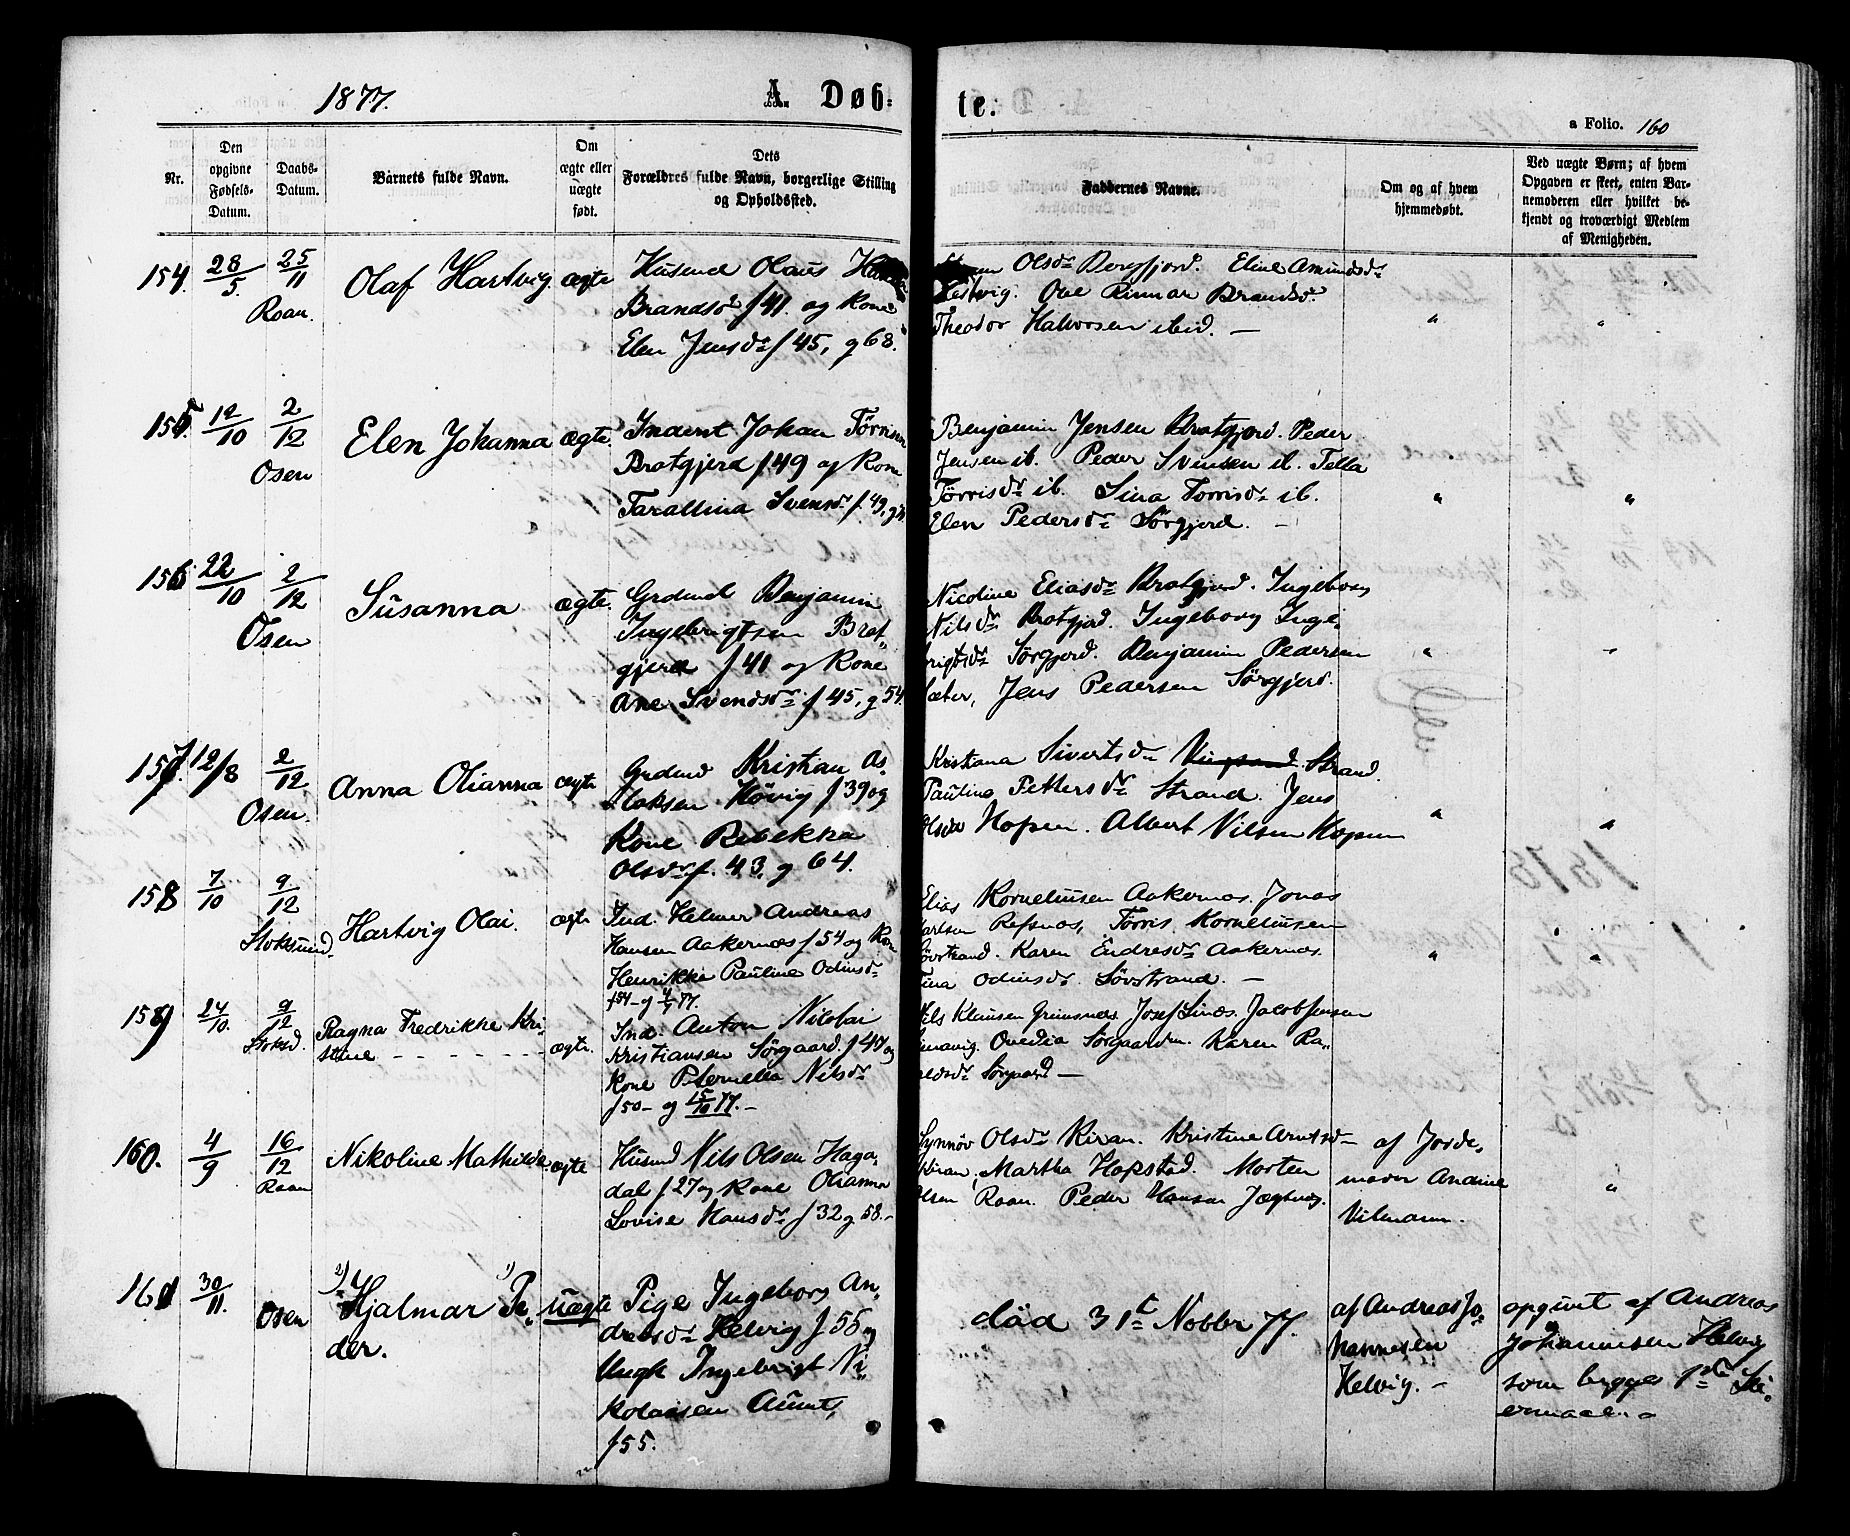 1877.
A. Døb-
te.
a Folio. 160
Nr.
Den
opgivne
Fødsels-
Datum.
Daabs-
Datum.
Barnets fulde Navn.
Om
ægte eller
uægte
født.
Dets
Forældres fulde Navn, borgerlige Stilling
og Opholdssted.
Faddernes Navne.
Om og af hvem
hjemmedøbt.
Ved uægte Børn; af hvem
Opgaven er skeet, enten Bar-
nemoderen eller hvilket be-
kjendt og troværdigt Medlem
af Menigheden.
154
28/5.
25/11
Roan.
Olaf Hartvig
ægte
Husmd Olaus
Brandsö f 41. og Kone
Elen Jensdr f 45, g 68.
Olsdr Bergfjord. Eline Amundsdr
Ove Rinnar Brandsö.
Theodor Halvorsen ibid. —
"
"
155
12/10
2/12
Osen
Elen Johanna
ægte.
Inderst Johan Törrisen
Bratgjerd f 49 og Kone
Tarallina Svensdr f. 49,
Benjamin Jensen Bratgjerd. Peder
Jensen ib. Peder Svensen ib. Tella
Törrisdr ib. Sina Torrisdr ib.
Elen Pedersdr Sörgjerd. —
"
"
156
22/10
2/12
Osen
Susanna
ægte.
Grdmd Benjamin
Ingebrigtsen Brat-
gjerd f 41 og Kone
Ane Svendsdr f 45, g 54.
Nicoline Eliasdr Bratgjerd. Ingeborg
Nilsdr Bratgjerd. Ingeborg Inge-
brigtsdr Sörgjerd. Benjamin Pedersen
Sæter, Jens Pedersen Sörgjerd.
"
"
157.
12/8
2/12
Osen.
Anna Olianna
ægte
Grdmd Kristian As-
laksen Hövig f 39 og
Kone Rebekka
Olsdr f. 43, g 64.
Kristana Sivertsdr Vingsand Strand.
Pauline Pettersdr Strand. Jens
Hopen. Albert Nilsen Hopen
"
"
158
7/10
9/12
Stoksund.
Hartvig Olai.
ægte
Ind. Helmer Andreas
Hansen Aakernæs f 54 og Kon
Henrikke Pauline Odinsdr
f 54 - g 4/9 77.
Elias Korneliusen Aakernes. Jonas
Karlsen Refsnæs, Törris Korneliusen
Sövstrand. Karen Endresdr Aakernes.
Tina Odinsdr. Sövstrand. —
"
"
159
24/10.
9/12
Stoksd.
Ragna Fredrikke Kri-
stine - - - - - -
ægte.
Ind. Anton Nicolai
Kristiansen Sörgaard. f 47 og
Kone Peternella Nilsdr
f 50 - g 15/10 77. -
Nils Klausen Grönsnes. Josef Linæs. Jacob Jensen
Ovedia Sörgaarden. Karen Ra-
Sörgaard —
160.
4/9
16/12
Roan
Nikoline Mathilde.
ægte
Husmd Nils Olsen Haga-
dal f 27 og Kone Olianna
Lovise Hansdr f 32 g 58. -
Synnöv Olsdr Kiran. Kristine Arntsdr
Kiran; Martha Hopstad. Morten
Olsen Roan. Peder Hansen Jægtvig.
af Jorde-
moder Andrine
Vilmann.
"
161
30/11.
Osen
2) Hjalmar 1) Pe-
der.
uægte
Pige Ingeborg An-
dreasdr Helvig f 55 og
Ungk Ingebrigt Ni-
kolaisen Aunet,
f 55.
död 31t Novbr 77.
af Andreas Jo-
hannesen
Helvig. -
opgivet af Andreas
Johannesen Helvig
som begges 1ste Lei-
ermaal. -